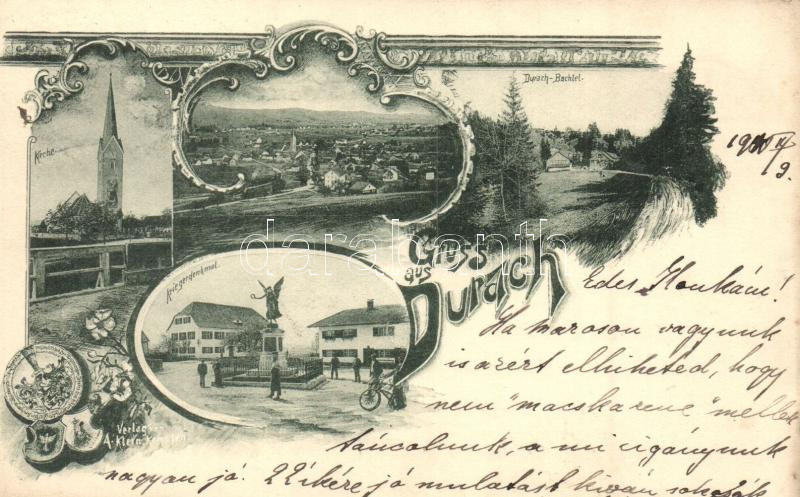 Kirche
Durach-Bachtel.
Kriegerdenkmal.
Gruss
aus
Durach
Verlag von
A. Klein, Kempten
darabanth.com
Edes Ilonkám!
Ha maroson vagyunk
is azért elhiheted, hogy
nem "macskazene" mellett
táncolunk, a mi cigányunk
nagyon jó. 22 ikére jó mulatást kíván